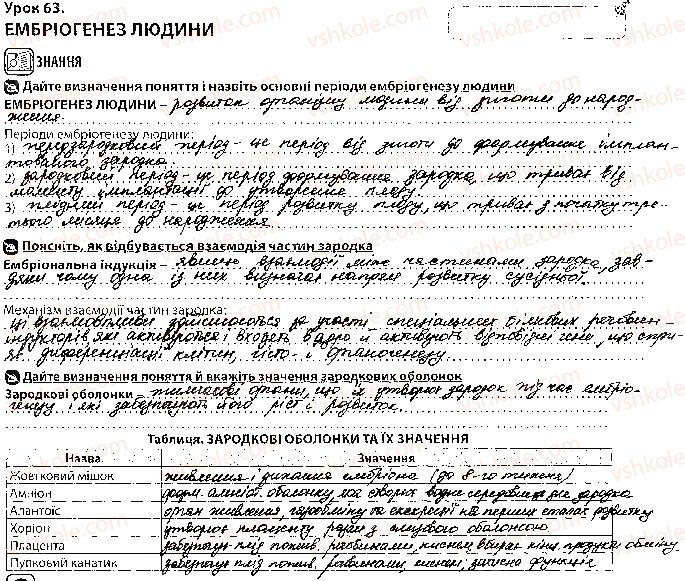 Урок 63.
ЕМБРІОГЕНЕЗ ЛЮДИНИ
ЗНАННЯ
Дайте визначення поняття і назвіть основні періоди ембріогенезу людини
ЕМБРІОГЕНЕЗ ЛЮДИНИ – розвиток організму людини від зиготи до народ-
ження.
Періоди ембріогенезу людини:
1) передзародковий період - це період від зиготи до формування імплан-
тованого зародка.
2) зародковий період - це період формування зародка, що триває від
моменту імплантації до утворення плоду.
3) плідний період - це період розвитку плоду, що триває з початку тре-
тього місяця до народження.
Поясніть, як відбувається взаємодія частин зародка
Ембріональна індукція – явище взаємодії між частинами зародка, зав-
дяки чому одна із них визначає напрям розвитку сусідньої.
Механізм взаємодії частин зародка:
ці взаємовпливи здійснюються за участі спеціальних білкових речовин-
індукторів які активуються і входять в ядро й активують відповідні гени, що спри-
яє диференціації клітин, гісто- і органогенезу.
Дайте визначення поняття й вкажіть значення зародкових оболонок
Зародкові оболонки – тимчасові органи, що їх утворює зародок під час ембріо-
генезу і які забезпечують його ріст і розвиток.
Таблиця. ЗАРОДКОВІ ОБОЛОНКИ ТА ЇХ ЗНАЧЕННЯ
Назва Значення
Жовтковий мішок живлення і дихання ембріона (до 8-го тижня)
Амніон форм. амніот. оболонку, яка створює водне середовище для зародка
Алантоїс орган живлення, газообміну та екскреції на перших етапах розвитку
Хоріон утворює плаценту разом з слизовою оболонкою
Плацента забезпечує плід пожив. речовинами, киснем, вбирає кінц. продукти обміну
Пупковий канатик забезпечує плід пожив. речовинами, киснем, захисна функція